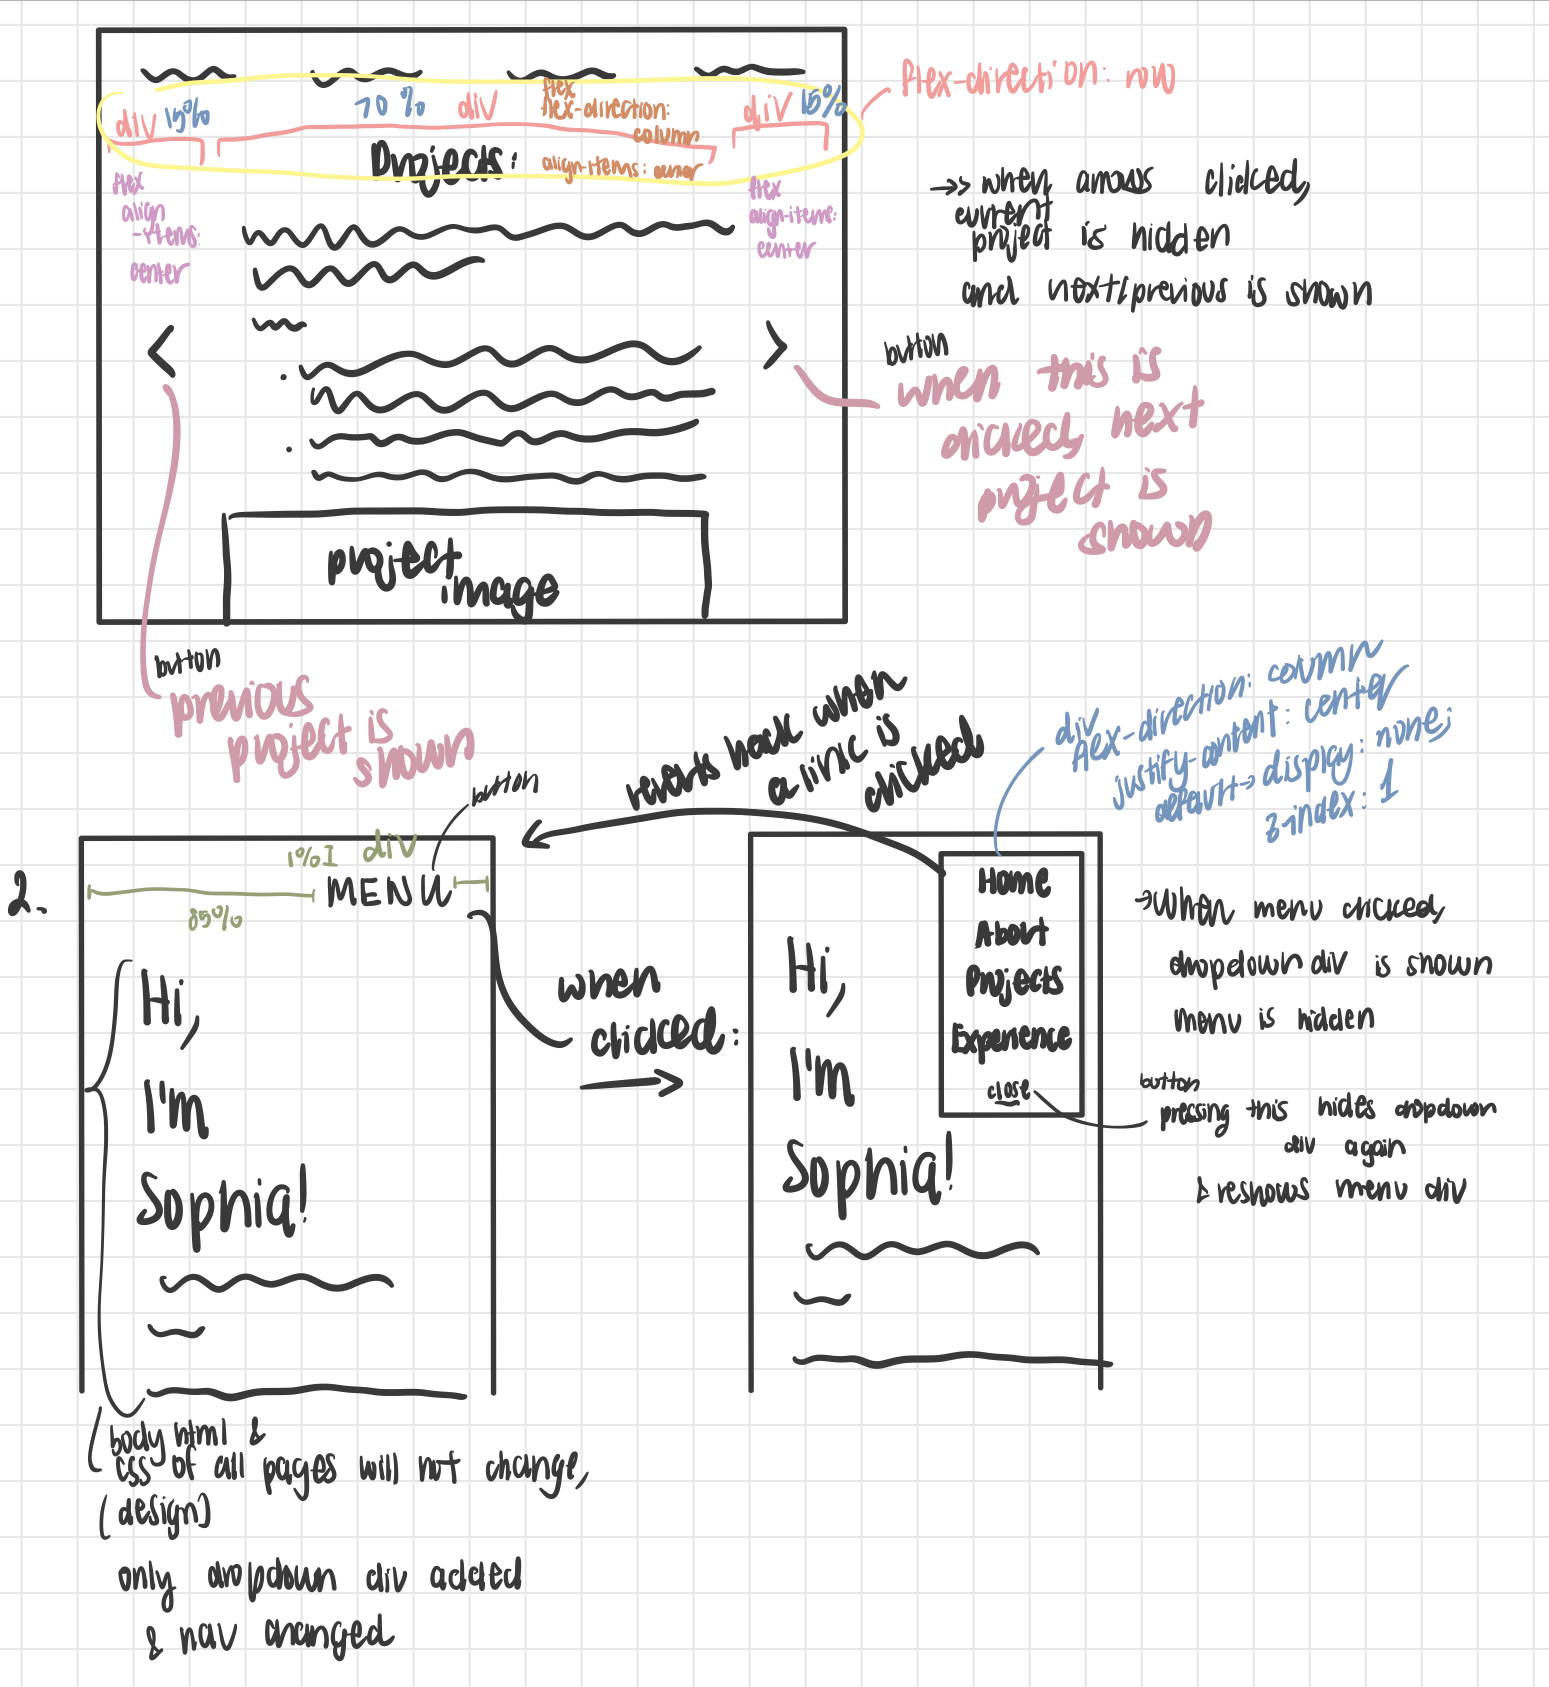 flex-direction: row
div 15%
70% div
flex
flex-direction:
column
align-items: center
div 15%
Projects:
flex
align
-items:
center
flex
align-items:
center
→ when arrows clicked,
current
project is hidden
and next/previous is shown
<
>
button
when this is
clicked, next
project is
shown
project
image
button
previous
project is
shown
reverts back when
a link is
clicked
div
flex-direction: column
justify-content: center
default → display: none;
z-index: 1
button
2.
1% div
85%
MENU
Hi,
I'm
Sophia!
when
clicked:
Home
About
Projects
Experience
close
Hi,
I'm
Sophia!
→ When menu clicked,
dropdown div is shown
menu is hidden
button
pressing this hides dropdown
div again
& reshows menu div
body html &
css of all pages will not change,
(design)
only dropdown div added
& nav changed